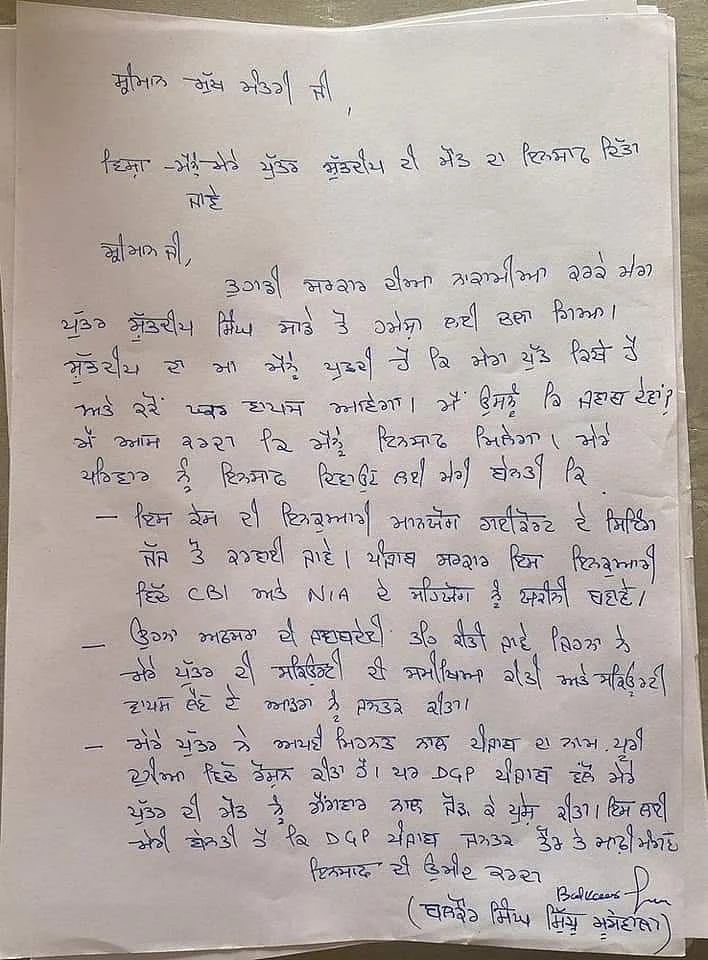 ਸ਼੍ਰੀਮਾਨ ਮੁੱਖ ਮੰਤਰੀ ਜੀ,
ਵਿਸ਼ਾ - ਮੈਨੂੰ ਮੇਰੇ ਪੁੱਤਰ ਸ਼ੁੱਭਦੀਪ ਦੀ ਮੌਤ ਦਾ ਇਨਸਾਫ ਦਿੱਤਾ
ਜਾਵੇ
ਸ਼੍ਰੀਮਾਨ ਜੀ,
ਤੁਹਾਡੀ ਸਰਕਾਰ ਦੀਆ ਨਾਕਾਮੀਆ ਕਰਕੇ ਮੇਰਾ
ਪੁੱਤਰ ਸ਼ੁੱਭਦੀਪ ਸਿੰਘ ਸਾਡੇ ਤੋਂ ਹਮੇਸ਼ਾ ਲਈ ਚਲਾ ਗਿਆ।
ਸ਼ੁੱਭਦੀਪ ਦਾ ਮਾ ਮੈਨੂੰ ਪੁਛਦੀ ਹੈ ਕਿ ਮੇਰਾ ਪੁੱਤ ਕਿਥੇ ਹੈ
ਅਤੇ ਕਦੋਂ ਘਰ ਵਾਪਸ ਆਵੇਗਾ। ਮੈਂ ਉਸਨੂੰ ਕਿ ਜਵਾਬ ਦੇਵਾਂ?
ਮੈਂ ਆਸ ਕਰਦਾ ਕਿ ਮੈਨੂੰ ਇਨਸਾਫ ਮਿਲੇਗਾ। ਮੇਰੇ
ਪਰਿਵਾਰ ਨੂੰ ਇਨਸਾਫ ਦਿਵਾਉਣ ਲਈ ਮੇਰੀ ਬੇਨਤੀ ਕਿ
- ਇਸ ਕੇਸ ਦੀ ਇਨਕੁਆਰੀ ਮਾਨਯੋਗ ਹਾਈਕੋਰਟ ਦੇ ਸਿਟਿੰਗ
ਜੱਜ ਤੋਂ ਕਰਵਾਈ ਜਾਵੇ। ਪੰਜਾਬ ਸਰਕਾਰ ਇਸ ਇਨਕੁਆਰੀ
ਵਿੱਚ CBI ਅਤੇ NIA ਦੇ ਸਹਿਯੋਗ ਨੂੰ ਯਕੀਨੀ ਬਣਾਵੇ।
- ਉਹਨਾ ਅਫਸਰਾ ਦੀ ਜਵਾਬਦੇਹੀ ਤਹਿ ਕੀਤੀ ਜਾਵੇ ਜਿਹਨਾ ਨੇ
ਮੇਰੇ ਪੁੱਤਰ ਦੀ ਸਕਿਉਰਟੀ ਦੀ ਸਮੀਖਿਆ ਕੀਤੀ ਅਤੇ ਸਕਿਉਰਟੀ
ਵਾਪਸ ਲੈਣ ਦੇ ਆਡਰਾ ਨੂੰ ਜਨਤਕ ਕੀਤਾ।
- ਮੇਰੇ ਪੁੱਤਰ ਨੇ ਅਪਣੀ ਮਿਹਨਤ ਨਾਲ ਪੰਜਾਬ ਦਾ ਨਾਮ ਪੂਰੀ
ਦੁਨੀਆ ਵਿੱਚ ਰੋਸ਼ਨ ਕੀਤਾ ਹੈ। ਪਰ DGP ਪੰਜਾਬ ਵੱਲੋਂ ਮੇਰੇ
ਪੁੱਤਰ ਦੀ ਮੌਤ ਨੂੰ ਗੈਂਗਵਾਰ ਨਾਲ ਜੋੜ ਕੇ ਪੇਸ਼ ਕੀਤਾ। ਇਸ ਲਈ
ਮੇਰੀ ਬੇਨਤੀ ਹੈ ਕਿ DGP ਪੰਜਾਬ ਜਨਤਕ ਤੌਰ ਤੇ ਮਾਫ਼ੀ ਮੰਗਣ
ਇਨਸਾਫ ਦੀ ਉਮੀਦ ਕਰਦਾ
Balkaur
(ਬਲਕੌਰ ਸਿੰਘ ਸਿੱਧੂ ਮੂਸੇਵਾਲਾ)